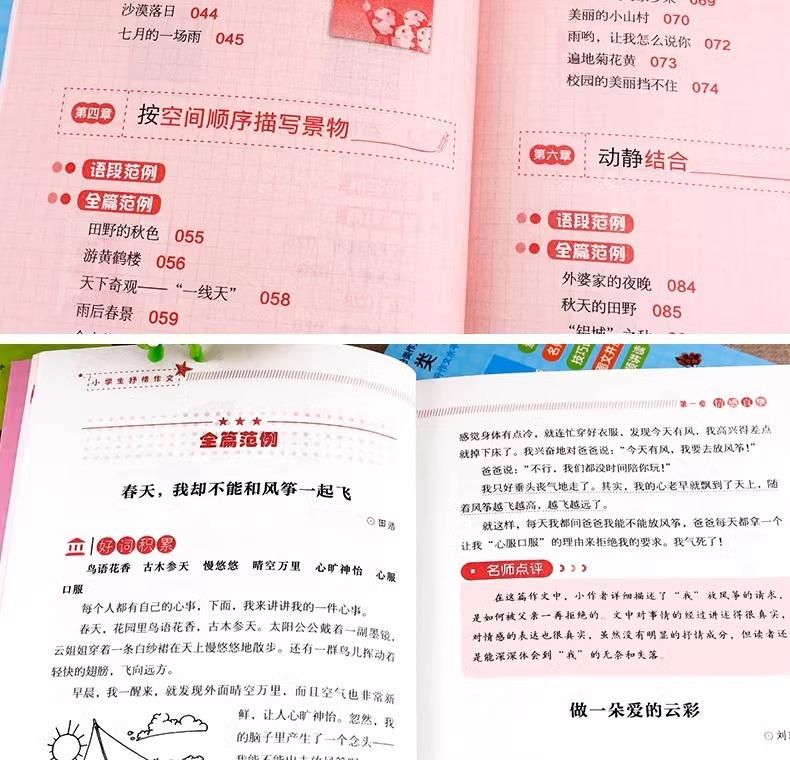 沙漠落日 044
七月的一场雨 045
第四章 按空间顺序描写景物
语段范例
全篇范例
田野的秋色 055
游黄鹤楼 056
天下奇观——“一线天” 058
雨后春景 059
069
美丽的小山村 070
雨哟，让我怎么说你 072
遍地菊花黄 073
校园的美丽挡不住 074
第六章 动静结合
语段范例
全篇范例
外婆家的夜晚 084
秋天的田野 085
小学生抒情作文
全篇范例
春天，我却不能和风筝一起飞
田浩
好词积累
鸟语花香 古木参天 慢悠悠 晴空万里 心旷神怡 心服
口服
每个人都有自己的心事，下面，我来讲讲我的一件心事。
春天，花园里鸟语花香，古木参天。太阳公公戴着一副墨镜，
云姐姐穿着一条白纱裙在天上慢悠悠地散步。还有一群鸟儿挥动着
轻快的翅膀，飞向远方。
早晨，我一醒来，就发现外面晴空万里，而且空气也非常新
鲜，让人心旷神怡。忽然，我
的脑子里产生了一个念头——
类
第一章 情感真挚
感觉身体有点冷，就连忙穿好衣服，发现今天有风，我高兴得差点
就掉下床了。我兴奋地对爸爸说：“今天有风，我要去放风筝！”
爸爸说：“不行，我们都没时间陪你玩！”
我只好垂头丧气地走了。其实，我的心老早就飘到了天上，随
着风筝越飞越高，越飞越远了。
就这样，每天我都问爸爸我能不能放风筝，爸爸每天都拿一个
让我“心服口服”的理由来拒绝我的要求。我气死了！
名师点评
在这篇作文中，小作者详细描述了“我”放风筝的请求，
是如何被父亲一再拒绝的。文中对事情的经过讲述得很真实，
对情感的表达也很真实，虽然没有明显的抒情成分，但读者还
是能深深体会到“我”的无奈和失落。
做一朵爱的云彩
刘